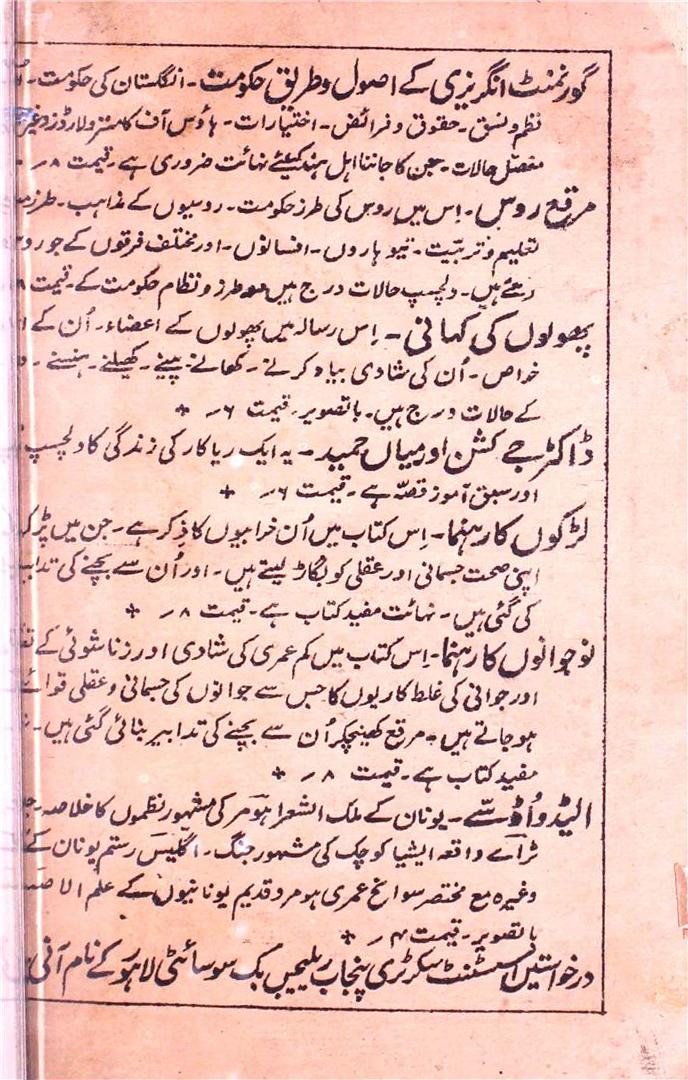 گورنمنٹ انگریزی کے اصول و طریق حکومت۔ انگلستان کی حکومت۔
نظم و نسق۔ حقوق و فرائض۔ اختیارات۔ ہاؤس آف کامنز و لارڈز وغیرہ
مفصل حالات۔ جن کا جاننا اہل ہند کیلئے نہائت ضروری ہے۔ قیمت ۸؍
مرقع روس۔ اِس میں روس کی طرز حکومت۔ روسیوں کے مذاہب۔ طرز
تعلیم و تربیت۔ تیوہاروں۔ افسانوں۔ اور مختلف فرقوں کے جو روس
رہتے ہیں۔ دلچسپ حالات درج ہیں معہ طرز و نظام حکومت کے۔ قیمت
پھولوں کی کہانی۔ اِس رسالہ میں پھولوں کے اعضاء۔ اُن کے
خواص۔ اُن کی شادی بیاہ کرنے۔ کھانے۔ پینے۔ کھیلنے۔ ہنسنے۔
کے حالات درج ہیں۔ باتصویر۔ قیمت ۶؍ +
ڈاکٹر جے کشن اور میاں حمید۔ یہ ایک ریاکار کی زندگی کا دلچسپ
اور سبق آموز قصّہ ہے۔ قیمت ۶؍ +
لڑکوں کا رہنما۔ اِس کتاب میں اُن خرابیوں کا ذِکر ہے۔ جن میں پڑ کر
اپنی صحت جسمانی اور عقلی کو بگاڑ لیتے ہیں۔ اور اُن سے بچنے کی تدابیر
کی گئی ہیں۔ نہائت مفید کتاب ہے۔ قیمت ۸؍ +
نوجوانوں کا رہنما۔ اِس کتاب میں کم عمری کی شادی اور زناشوئی کے
اور جوانی کی غلط کاریوں کا جس سے جوانوں کی جسمانی و عقلی قوائے
ہو جاتے ہیں۔ مرقع کھینچکر اُن سے بچنے کی تدابیر بتائی گئی ہیں۔
مفید کتاب ہے۔ قیمت ۸؍ +
الیڈ و اُڈسّے۔ یونان کے ملک الشعرا ہومر کی مشہور نظموں کا خلاصہ۔
ٹرآے واقعہ ایشیا کوچک کی مشہور جنگ۔ اگلیس رستم یونان کے
وغیرہ مع مختصر سوانح عمری ہومر و قدیم یونانیوں کے علم الا
باتصویر۔ قیمت ۴؍ +
درخواستیں اسسٹنٹ سکرٹری پنجاب ریلیجیس بک سوسائٹی لاہور کے نام آنی